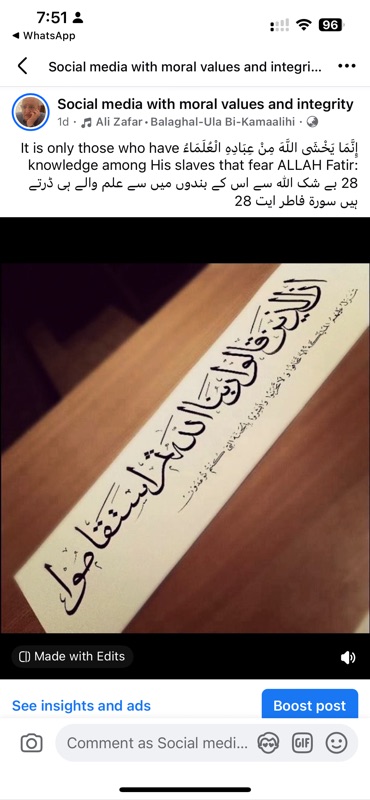 7:51
96
WhatsApp
Social media with moral values and integri...
Social media with moral values and integrity
1d · Ali Zafar • Balaghal-Ula Bi-Kamaalihi ·
It is only those who have إِنَّمَا يَخْشَى اللَّهَ مِنْ عِبَادِهِ الْعُلَمَاءُ
knowledge among His slaves that fear ALLAH Fatir:
28 بے شک اللہ سے اس کے بندوں میں سے علم والے ہی ڈرتے
ہیں سورۃ فاطر ایت 28
ان الذين قالوا ربنا الله ثم استقاموا
تتنزل عليهم الملائكة ألا تخافوا ولا تحزنوا وأبشروا بالجنة التي كنتم توعدون
Made with Edits
See insights and ads
Boost post
Comment as Social medi...
GIF